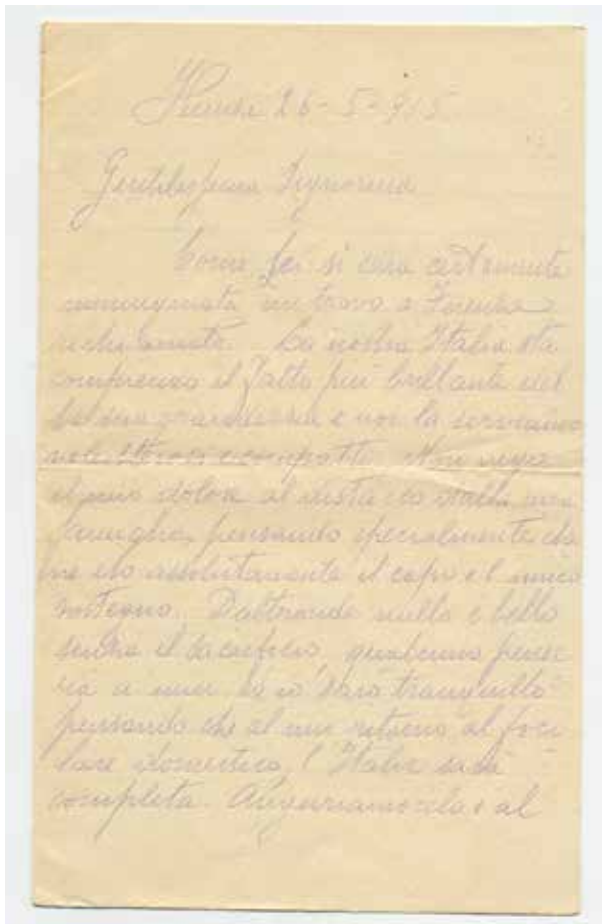 Firenze 26-5-915
Gentilissima Signorina
Come Lei si sarà certamente
immaginata mi trovo a Firenze
richiamato. La nostra Italia sta
compiendo il fatto più brillante del
la sua grandezza e noi la serviamo
compatti. Non nego
il mio dolore al distacco dalla mia
famiglia, pensando specialmente che
ne ero assolutamente il capo e l'unico
sostegno. D'altronde nulla è bello
senza il sacrificio, qualcuno pense
rà a miei ed io sarò tranquillo
pensando che al mio ritorno al foco
lare domestico, l'Italia sarà
completa. Auguriamocelo e al